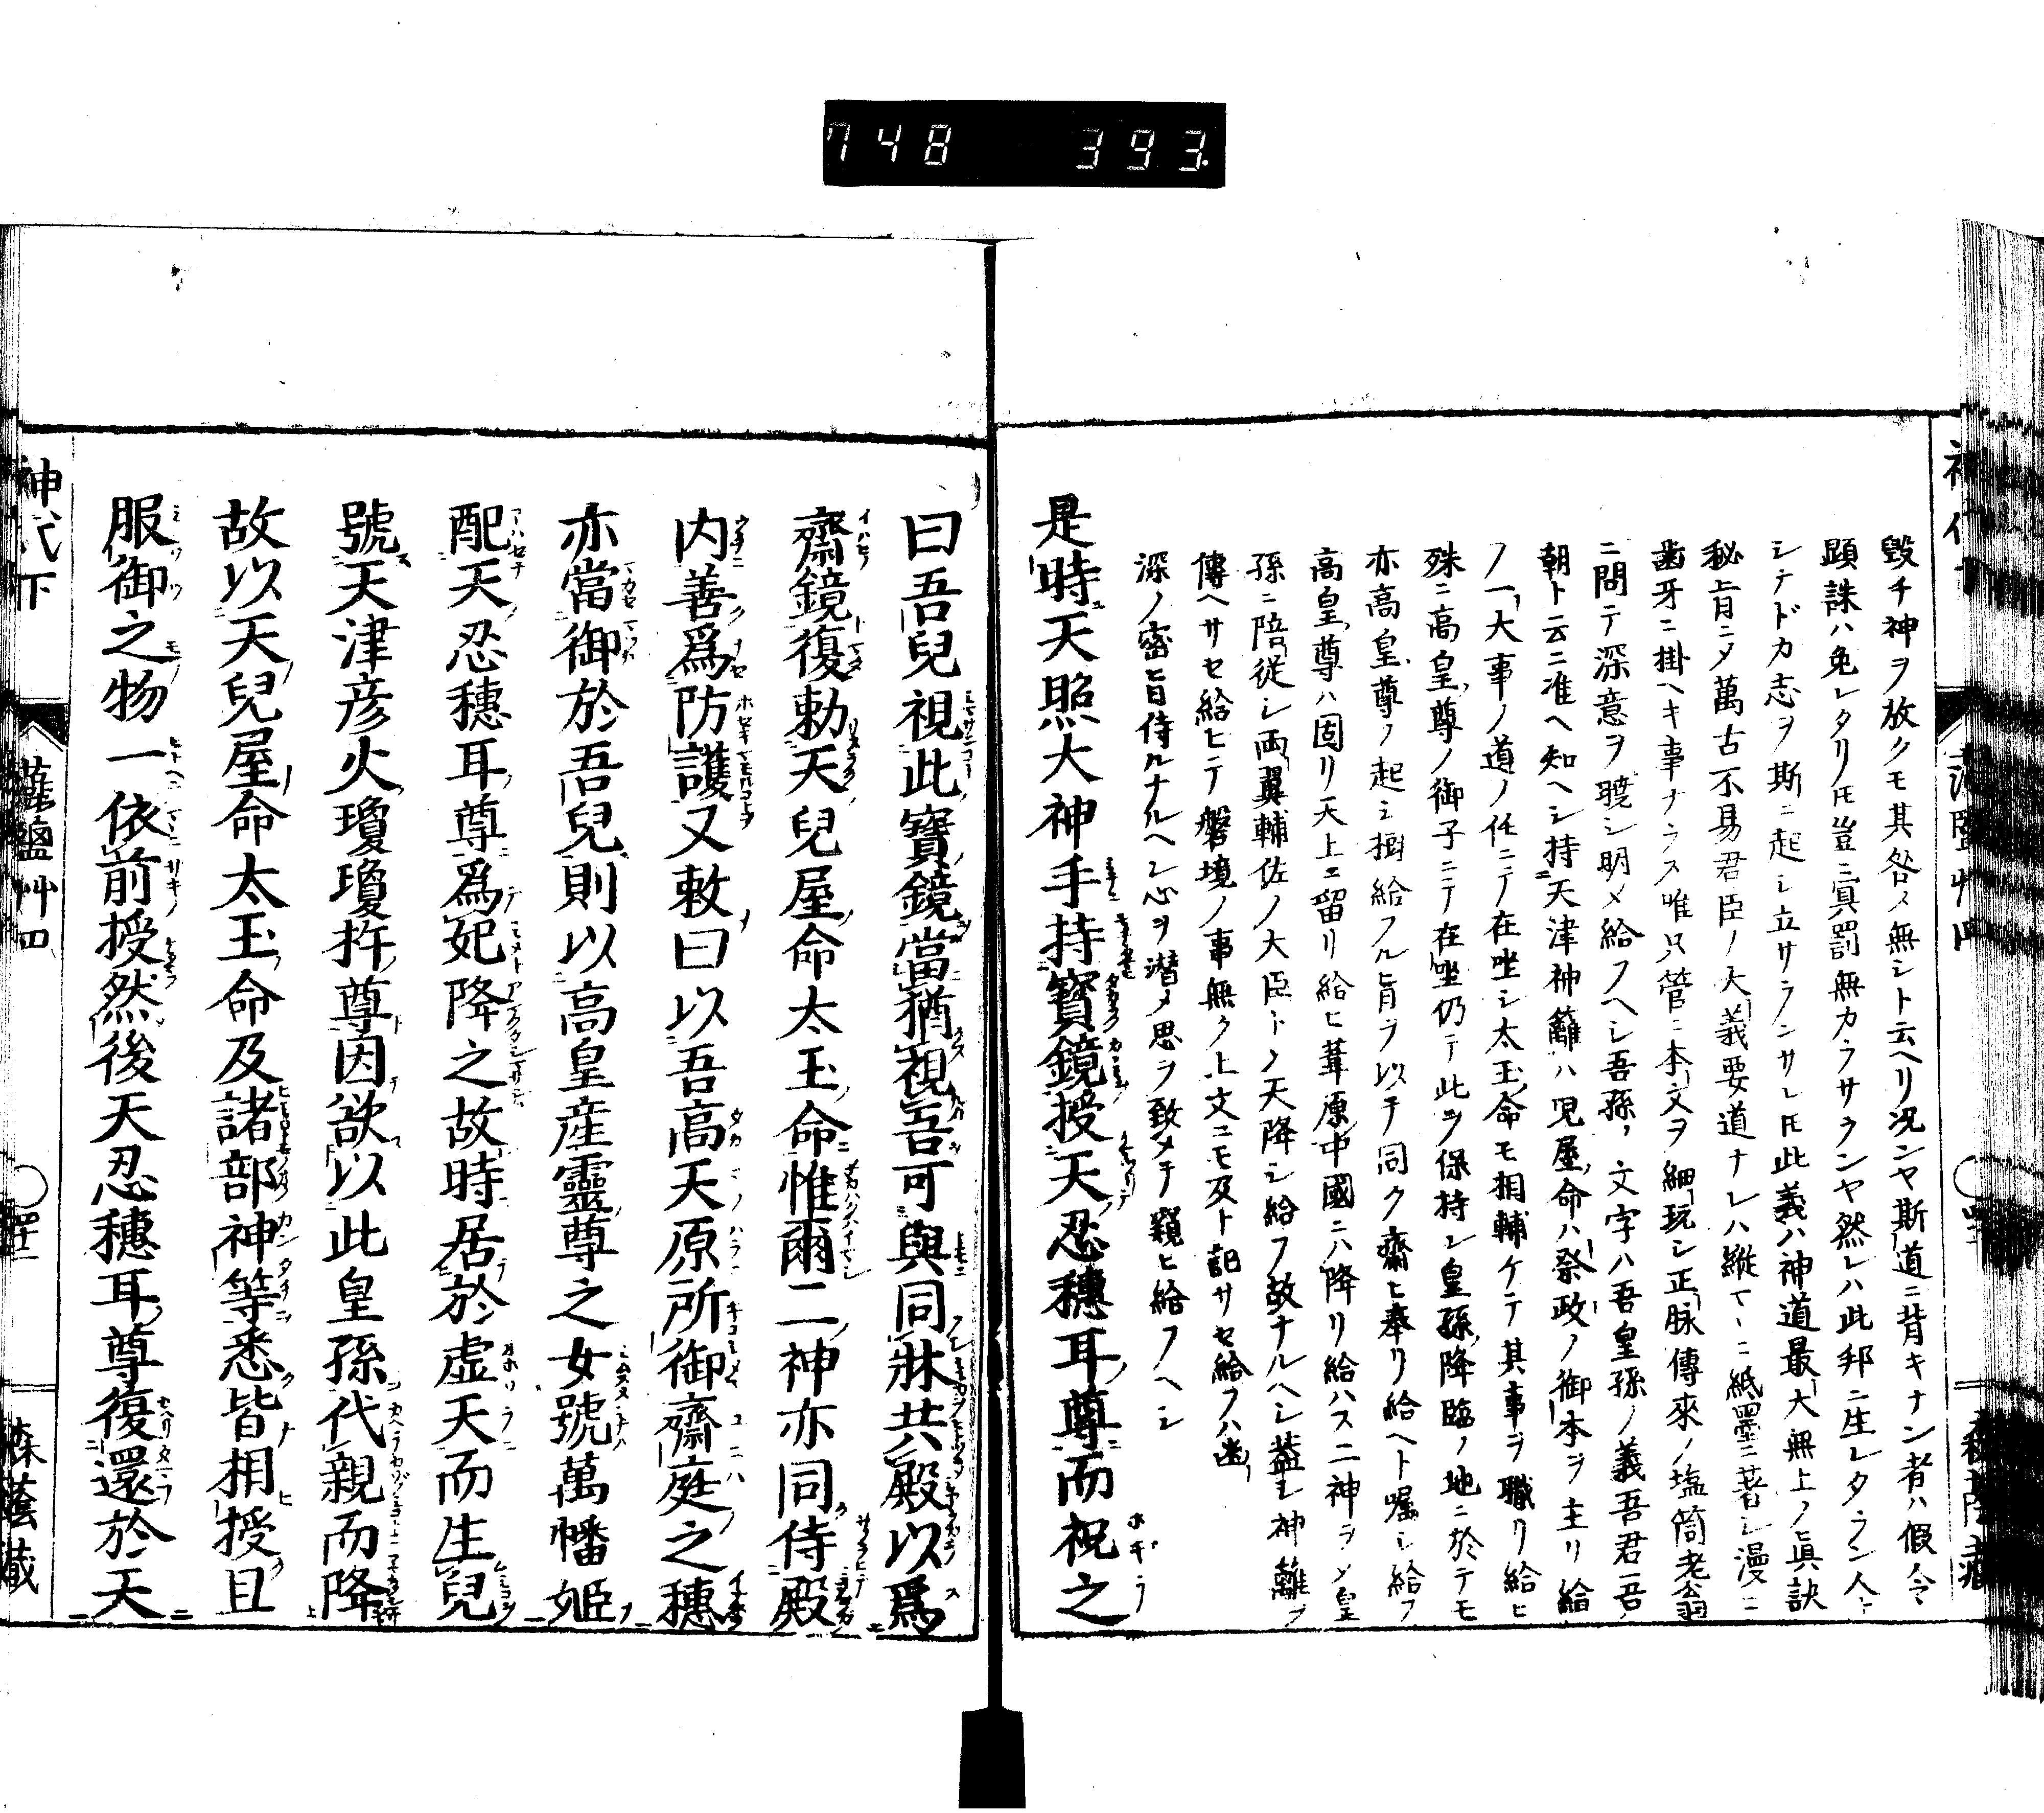 748 393
毀チ神ヲ放クモ其咎メ無シト云ヘリ况ンヤ斯道ニ背キナン者ハ假令
顕誅ハ免レタリ𪜈豈ニ冥罰無カラサランヤ然レハ此邦ニ生レタラン人々
シテドカ志ヲ斯ニ起シ立サランサレ𪜈此義ハ神道最大無上ノ眞訣
秘旨ニメ萬古不易君臣ノ大義要道ナレハ縦マヽニ紙墨ニ著シ漫ニ
歯牙ニ掛ヘキ事ナラス唯只管ニ本文ヲ細玩シ正脉傳來ノ塩筒老翁
ニ問テ深意ヲ暁シ明メ給フヘシ吾孫ノ文字ハ吾皇孫ノ義吾君吾
朝ト云ニ准ヘ知ヘシ持天津神籬ハ児屋命ハ祭政ノ御本ヲ主リ給
ノ一大事ノ道ノ任ニテ在坐シ太玉命モ相輔ケテ其事ヲ職リ給ヒ
殊ニ高皇尊ノ御子ニテ在坐仍テ此ヲ保持シ皇孫降臨ノ地ニ於テモ
亦高皇尊ノ起シ樹給フル旨ヲ以チ同ク齋ヒ奉リ給ヘト嘱シ給フ
高皇尊ハ固リ天上ニ留リ給ヒ葦原中國ニハ降リ給ハス二神ヲメ皇
孫ニ陪從シ両翼輔佐ノ大臣トノ天降シ給フ故ナルヘシ蓋シ神籬ヲ
傳ヘサセ給ヒテ磐境ノ事無ク上文ニモ及ト記サセ給フハ幽
深ノ密旨侍ルナルヘシ心ヲ潜メ思ヲ致メチ窺ヒ給フヘシ
是時天照大神手持寶鏡授天忍穗耳尊而祝之
曰吾兒視此寶鏡當猶視吾可與同牀共殿以爲
齋鏡復勅天兒屋命太玉命惟爾二神亦同侍殿
内善爲防護又敕曰以吾高天原所御齋庭之穗
亦當御於吾兒則以高皇産靈尊之女號萬幡姫
配天忍穗耳尊爲妃降之故時居於虚天而生兒
號天津彦火瓊瓊杵尊因欲以此皇孫代親而降
故以天兒屋命太玉命及諸部神等悉皆相授且
服御之物一依前授然後天忍穗耳尊復還於天
神代下 藻鹽艸四 森蔭藏